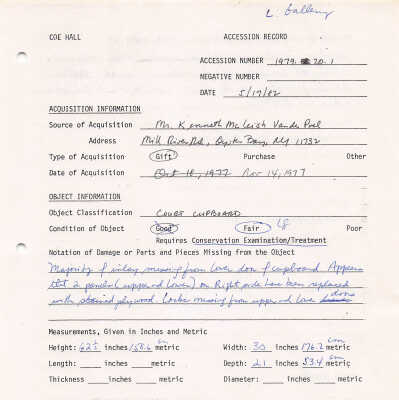 L. Gallery
COE HALL ACCESSION RECORD
ACCESSION NUMBER 1979. 20.1
NEGATIVE NUMBER
DATE 5/17/82
ACQUISITION INFORMATION
Source of Acquisition Mr. Kenneth McLeish Vander Poel
Address Mill River Rd, Oyster Bay, NY 11732
Type of Acquisition Gift Purchase Other
Date of Acquisition Oct 18, 1977 Nov 14, 1977
OBJECT INFORMATION
Object Classification COURT CUPBOARD
Condition of Object Good Fair Poor
Requires Conservation Examination/Treatment
Notation of Damage or Parts and Pieces Missing from the Object
Majority of inlay missing from lower door of cupboard. Appears
that 2 panels (upper and lower) on Right side have been replaced
with stained plywood. Locks missing from upper and lower doors
Measurements, Given in Inches and Metric
Height: 62½ inches/158.6 cm metric Width: 30 inches/76.2 cm metric
Length: inches metric Depth: 21 inches/53.4 cm metric
Thickness inches metric Diameter: inches metric